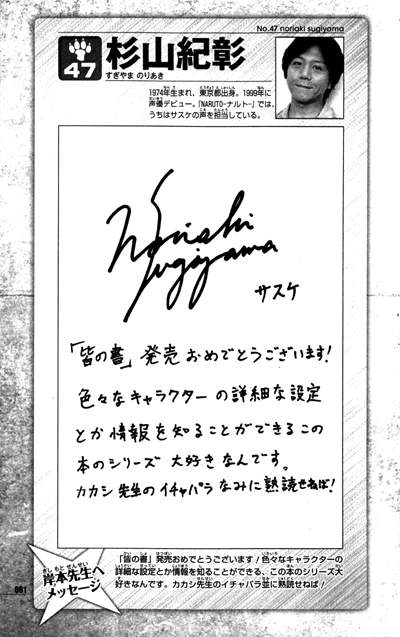 No.47 noriaki sugiyama
47
杉山紀彰
すぎやま のりあき
1974年生まれ、東京都出身。1999年に
声優デビュー。『NARUTO-ナルト-』では、
うちはサスケの声を担当している。
Noriaki
Sugiyama
サスケ
「皆の書」発売おめでとうございます!
色々なキャラクターの詳細な設定
とか情報を知ることができるこの
本のシリーズ大好きなんです。
カカシ先生のイチャパラなみに熟読せねば!
岸本先生へ
メッセージ
「皆の書」発売おめでとうございます!色々なキャラクターの
詳細な設定とか情報を知ることができる、この本のシリーズ大
好きなんです。カカシ先生のイチャパラ並に熟読せねば!
061